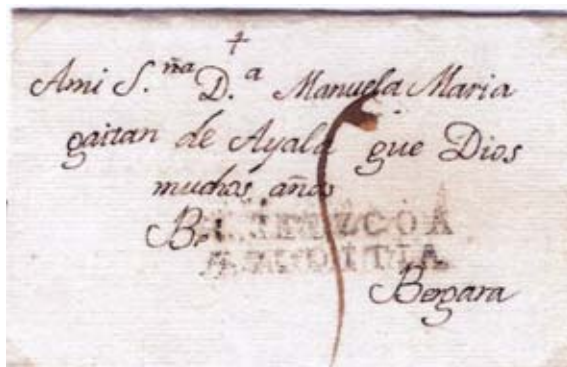 A mi S.ña D.a Manuela Maria
gaitan de Ayala gue Dios
muchos años
B.
Bergara